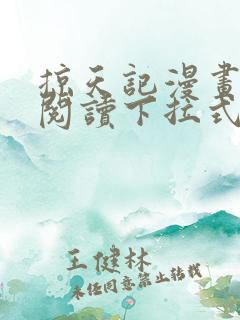 掠天記漫畫
閱讀下拉式
王健林
未经同意禁止转载